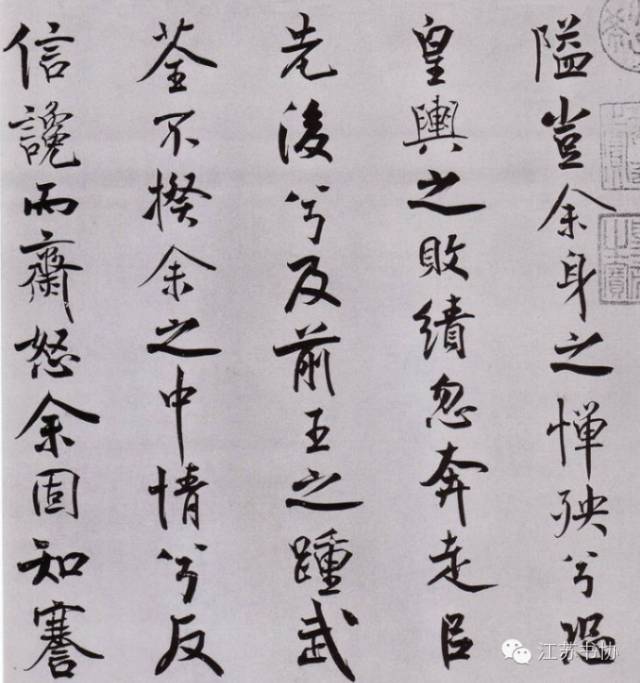 隘豈余身之憚殃兮恐
皇輿之敗績忽奔走㠯
先後兮及前王之踵武
荃不揆余之中情兮反
信讒而齌怒余固知謇
江苏书协